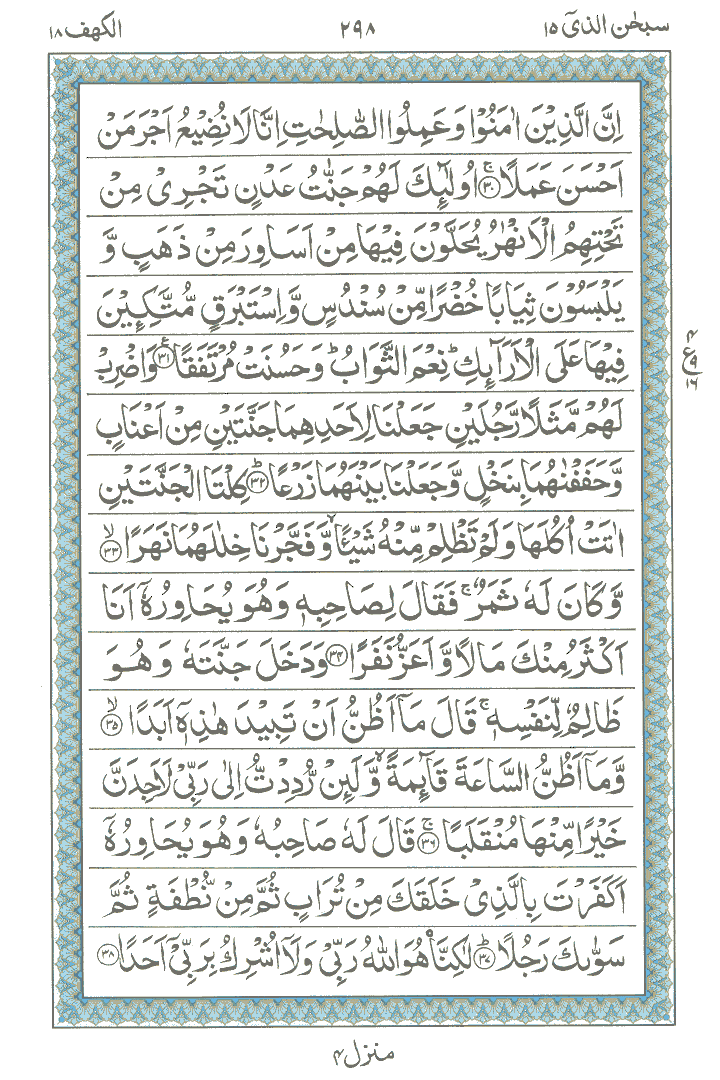 سبحٰن الذیٓ ۱۵ ۲۹۸ الکهف ۱۸
اِنَّ الَّذِيْنَ اٰمَنُوْا وَعَمِلُوا الصّٰلِحٰتِ اِنَّا لَا نُضِيْعُ اَجْرَ مَنْ
اَحْسَنَ عَمَلًا ۚ﴿۳۰﴾ اُولٰٓئِكَ لَهُمْ جَنّٰتُ عَدْنٍ تَجْرِىْ مِنْ
تَحْتِهِمُ الْاَنْهٰرُ يُحَلَّوْنَ فِيْهَا مِنْ اَسَاوِرَ مِنْ ذَهَبٍ وَّ
يَلْبَسُوْنَ ثِيَابًا خُضْرًا مِّنْ سُنْدُسٍ وَّاِسْتَبْرَقٍ مُّتَّكِـِٕيْنَ
فِيْهَا عَلَى الْاَرَآئِكِ ؕ نِعْمَ الثَّوَابُ ؕ وَحَسُنَتْ مُرْتَفَقًا ﴿۳۱﴾ وَاضْرِبْ
لَهُمْ مَّثَلًا رَّجُلَيْنِ جَعَلْنَا لِاَحَدِهِمَا جَنَّتَيْنِ مِنْ اَعْنَابٍ
وَّحَفَفْنٰهُمَا بِنَخْلٍ وَّجَعَلْنَا بَيْنَهُمَا زَرْعًا ؕ﴿۳۲﴾ كِلْتَا الْجَنَّتَيْنِ
اٰتَتْ اُكُلَهَا وَلَمْ تَظْلِمْ مِّنْهُ شَيْـًٔا ۙ وَّفَجَّرْنَا خِلٰلَهُمَا نَهَرًا ۙ﴿۳۳﴾
وَّكَانَ لَهٗ ثَمَرٌ ۚ فَقَالَ لِصَاحِبِهٖ وَهُوَ يُحَاوِرُهٗۤ اَنَا
اَكْثَرُ مِنْكَ مَالًا وَّاَعَزُّ نَفَرًا ﴿۳۴﴾ وَدَخَلَ جَنَّتَهٗ وَهُوَ
ظَالِمٌ لِّنَفْسِهٖ ۚ قَالَ مَاۤ اَظُنُّ اَنْ تَبِيْدَ هٰذِهٖۤ اَبَدًا ۙ﴿۳۵﴾
وَّمَاۤ اَظُنُّ السَّاعَةَ قَآئِمَةً ۙ وَّلَئِنْ رُّدِدْتُّ اِلٰى رَبِّىْ لَاَجِدَنَّ
خَيْرًا مِّنْهَا مُنْقَلَبًا ۚ﴿۳۶﴾ قَالَ لَهٗ صَاحِبُهٗ وَهُوَ يُحَاوِرُهٗۤ
اَكَفَرْتَ بِالَّذِىْ خَلَقَكَ مِنْ تُرَابٍ ثُمَّ مِنْ نُّطْفَةٍ ثُمَّ
سَوّٰىكَ رَجُلًا ؕ﴿۳۷﴾ لٰكِنَّا۠ هُوَ اللّٰهُ رَبِّىْ وَلَاۤ اُشْرِكُ بِرَبِّىْۤ اَحَدًا ﴿۳۸﴾
۴
ع ۹
۱۶
منزل ۴